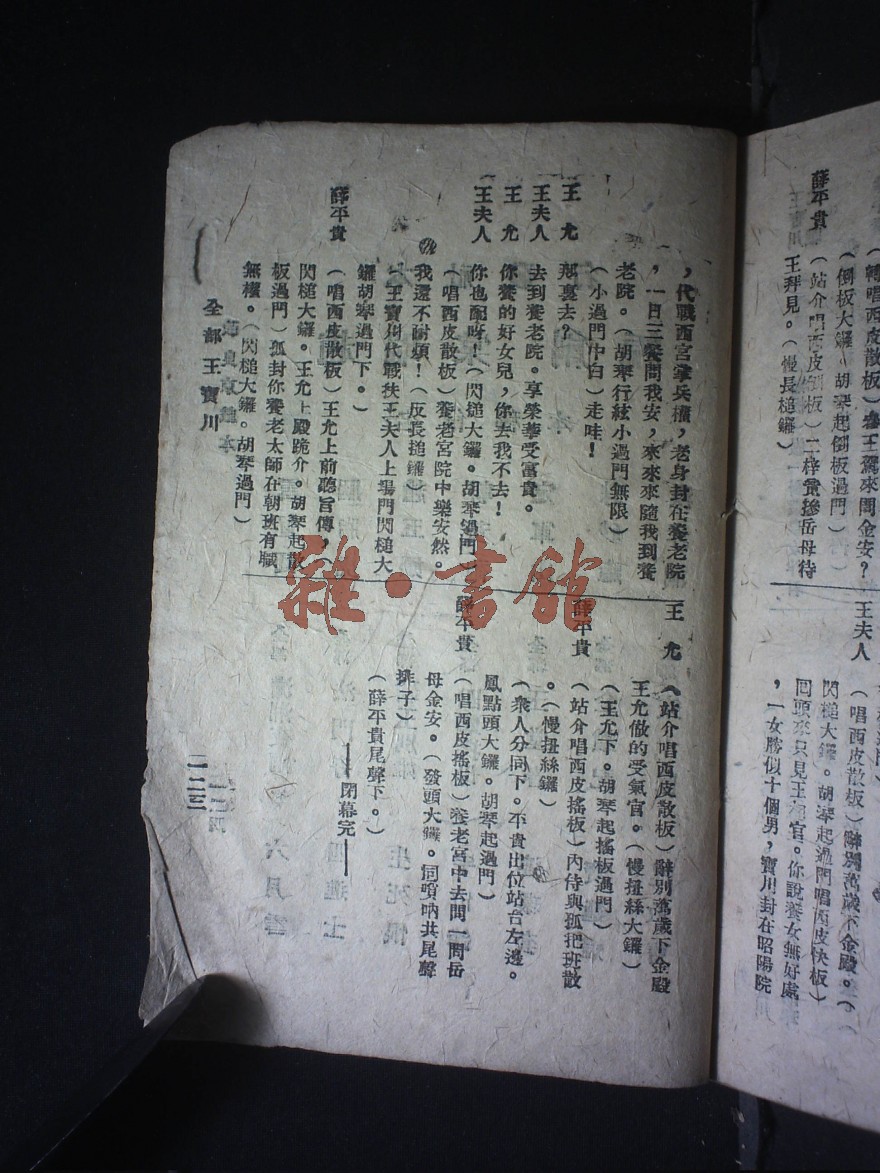 薛平貴
（轉唱西皮散板）參王駕來問金安？
（倒板大鑼。胡琴起倒板過門）
（站介唱西皮倒板）二梓童摻岳母待
王拜見。（慢長槌鑼）
王夫人
（唱西皮散板）辭別萬歲下金殿。（
閃槌大鑼。胡琴起過門唱西皮快板）
回頭來只見王允官。你說養女無好處
，一女勝似十個男，寶川封在昭陽院
，代戰西宮掌兵權，老身封在養老院
，一日三餐問我安，來來來隨我到養
老院。（胡琴行絃小過門無限）
（小過門中白）走哇！
王　允　那裏去？
王夫人　去到養老院。享榮華受富貴。
王　允　你養的好女兒，你去我不去！
王夫人　你也配呀！（閃槌大鑼。胡琴過門）
（唱西皮散板）養老宮院中樂安然。
我還不耐煩！（反長搥鑼）
（王寶川代戰扶王夫人上場門閃槌大
鑼胡琴過門下。）
薛平貴　（唱西皮散板）王允上前聽旨傳，（
閃槌大鑼。王允上殿跪介。胡琴起散
板過門）孤封你養老太師在朝班有職
無權。（閃槌大鑼。胡琴過門）
王　允　（站介唱西皮散板）辭別萬歲下金殿
王允做的受氣官。（慢扭絲大鑼）
（王允下。胡琴起搖板過門）
薛平貴　（站介唱西皮搖板）內侍與孤把班散
。（慢扭絲鑼）
（衆人分同下。平貴出位站台左邊。
鳳點頭大鑼。胡琴起過門）
薛平貴　（唱西皮搖板）養老宮中去問一問岳
母金安。（發頭大鑼。同嗩吶共尾聲
排子）
（薛平貴尾聲下。）
——閉幕完——
全部王寶川
一二三
雜·書館